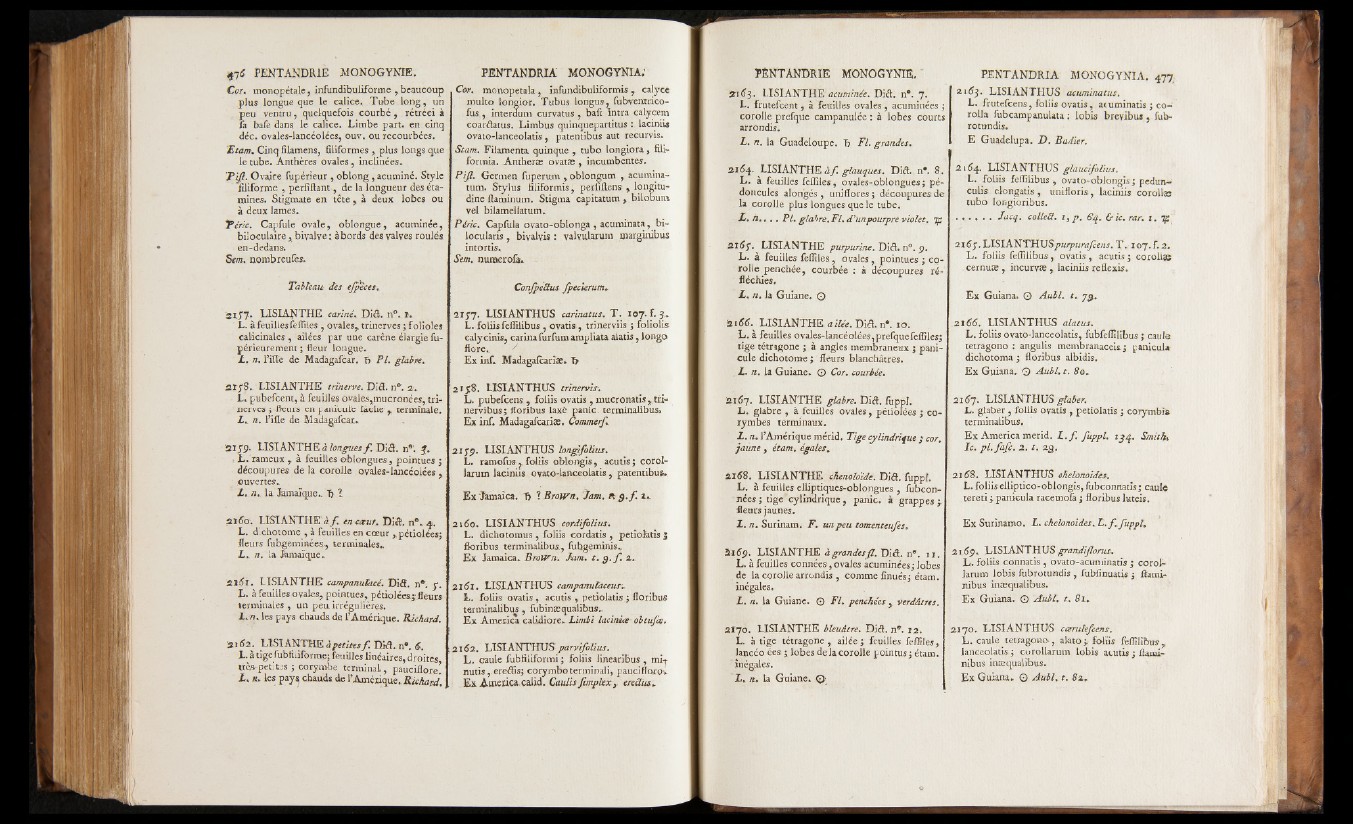 476 PENTANDRIE MONOGYNIE.
Cor. monopétale, infundibuliforme, beaucoup
plus longue que le calice. Tube long, un
peu ventru, quelquefois courbé, rétréci à
fa bafe dans le calice. Limbe part. en cinq
déc. ovales-lancéolées, ouv. ou recourbées.
Etam. Cinq filamens, filiformes, plus longs que
le tube. Anthères ovales, inclinées.
Pift. Ovaire fupérieur, oblong, acuminé. Style
filiforme, perfiftant, de la longueur des éta-
mines. Stigmate en tête, à deux lobes ou
à deux lames.
Péric. Capfule ovale, oblongue, acuminée,
biloculaire, bivalve: à bords des valves roulés
en-dedans.
Sem. nombreufes.
Tableau des efpèces.
2157. LISIANTHE cariné. Dict. n°. 1.
L. à feuilles feffiles, ovales, trinerves; folioles
calicinales, ailées par une carène élargie fu-
périeurement; fleur longue.
L. n. l'ifle de Madagafcar. ♄ Pl. glabre.
2158. LISIANTHE trinerve. Dict. n°. 2.
L. pubefcent, à feuilles ovales, mucronées, tri-
nerves; fleurs en panicule lâche, terminale.
L. n. l'ifle de Madagafcar.
2159. LISIANTHE à longues f. Dict. n°. 3.
L. rameux, à feuilles oblongues, pointues;
découpures de la corolle ovales-lancéolées,
ouvertes.
L. n. la Jamaïque. ♄ ?
2160. LISIANTHE à f. en cœur. Dict. n°. 4.
L. dichotome, à feuilles en cœur, pétiolées;
fleurs fubgeminées, terminales.
L. n. la Jamaïque.
2161. LISIANTHE campanulacé. Dict. n°. 5.
L. à feuilles ovales, pointues, pétiolées; fleurs
terminales, un peu irrégulières.
L. n. les pays chauds de l'Amérique. Richard.
2162. LISIANTHE à petites f. Dict. n°. 6.
L. à tige fubfiliforme; feuilles linéaires, droites,
très-petites; corymbe terminal, pauciflore.
L. n. les pays chauds de l'Amérique. Richard.
PENTANDRIA MONOGYNIA.
Cor. monopetala, infundibuliformis, calyce
multo longior. Tubus longus, fubventrico-
fus, interdum curvatus, bafi intra calycem
coarctatus. Limbus quinquepartitus: laciniis
ovato-lanceolatis, patentibus aut recurvis.
Stam. Filamenta quinque, tubo longiora, fili-
formia. Antheræ ovatæ, incumbentes.
Pift. Germen fuperum, oblongum, acumina-
tum. Stylus filiformis, perfiftens, longitu-
dine ftaminum. Stigma capitatum, bilobum
vel bilamellatum.
Péric. Capfula ovato-oblonga, acuminata, bi-
locularis, bivalvis: valvularum marginibus
intortis.
Sem. numerofa.
Confpectus fpecierum.
2157. LISIANTHUS carinatus. T. 107. f. 3.
L. foliis feffilibus, ovatis, trinerviis; foliolis
calycinis, carina furfum ampliata alatis, longo
flore.
Ex inf. Madagafcariæ. ♄
2158. LISIANTHUS trinervis.
L. pubefcens, foliis ovatis, mucronatis, tri-
nervibus; floribus laxè panic. terminalibus.
Ex inf. Madagafcariæ. Commerf.
2159. LISIANTHUS longifolius.
L. ramofus, foliis oblongis, acutis; corol-
larum laciniis ovato-lanceolatis, patentibus.
Ex Jamaica. ♄ ? Brown. Jam. t. 9. f. 1.
2160. LISIANTHUS cordifolius.
L. dichotomus, foliis cordatis, petiolatis;
floribus terminalibus, fubgeminis.
Ex Jamaica. Brown. Jam. t. 9. f. 2.
2161. LISIANTHUS campanulaceus.
L. foliis ovatis, acutis, petiolatis; floribus
terminalibus, fubinæqualibus.
Ex America calidiore. Limbi laciniæ obtufæ.
2162. LISIANTHUS parvifolius.
L. caule fubfiliformi; foliis linearibus, mi-
nutis, erectis; corymbo terminali, paucifloro.
Ex America calid. Caulis fimplex, erectus.
PENTANDRIE MONOGYNIE.
2163. LISIANTHE acuminée. Dict. n°. 7.
L. frutefcent, à feuilles ovales, acuminées;
corolle prefque campanulée: à lobes courts
arrondis.
L. n. la Guadeloupe. ♄ Fl. grandes.
2164. LISIANTHE à f. glauques. Dict. n°. 8.
L. à feuilles feffiles, ovales-oblongues; pé-
doncules alongés, uniflores; découpures de
la corolle plus longues que le tube.
L. n.... Pl. glabre. Fl. d'un pourpre violet. ♃
2165. LISIANTHE purpurine. Dict. n°. 9.
L. à feuilles feffiles, ovales, pointues; co-
rolle penchée, courbée: à découpures ré-
fléchies.
L. n. la Guiane. ☉
2166. LISIANTHE ailée. Dict. n°. 10.
L. à feuilles ovales-lancéolées, prefque feffiles;
tige tétragone; à angles membraneux; pani-
cule dichotome; fleurs blanchâtres.
L. n. la Guiane. ☉ Cor. courbée.
2167. LISIANTHE glabre. Dict. fuppl.
L. glabre, à feuilles ovales, pétiolées; co-
rymbes terminaux.
L. n. l'Amérique mérid. Tige cylindrique; cor.
jaune, étam. égales.
2168. LISIANTHE chenoloïde. Dict. fuppl.
L. à feuilles elliptiques-oblongues, fubcon-
nées; tige cylindrique, panic. à grappes;
fleurs jaunes.
L. n. Surinam. F. un peu tomenteufes.
2169. LISIANTHE à grandes fl. Dict. n°. 11.
L. à feuilles connées, ovales acuminées; lobes
de la corolle arrondis, comme finués; étam.
inégales.
L. n. la Guiane. ☉ Fl. penchées, verdâtres.
2170. LISIANTHE bleuâtre. Dict. n°. 12.
L. à tige tétragone, ailée; feuilles feffiles,
lancéolées; lobes de la corolle pointus; étam.
inégales.
L. n. la Guiane. ☉
PENTANDRIA MONOGYNIA. 477
2163. LISIANTHUS acuminatus.
L. frutefcens, foliis ovatis, acuminatis; co-
rolla fubcampanulata: lobis brevibus, fub-
rotundis.
E Guadelupa. D. Badier.
2164. LISIANTHUS glaucifolius.
L. foliis feffilibus, ovato-oblongis; pedun-
culis elongatis, unifloris, laciniis corollæ
tubo longioribus.
...... Jacq. collect. 1, p. 64. & ic. rar. 1. ♃
2165. LISIANTHUS purpurafcens. T. 107. f. 2.
L. foliis feffilibus, ovatis, acutis; corollæ
cernuæ, incurvæ, laciniis reflexis.
Ex Guiana. ☉ Aubl. t. 79.
2166. LISIANTHUS alatus.
L. foliis ovato-lanceolatis, fubfeffilibus; caule
tetragono: angulis membranaceis; panicula
dichotoma; floribus albidis.
Ex Guiana. ☉ Aubl. t. 80.
2167. LISIANTHUS glaber.
L. glaber, foliis ovatis, petiolatis; corymbis
terminalibus.
Ex America merid. L. f. fuppl. 134. Smith.
Ic. pl. fafc. 2. t. 29.
2168. LISIANTHUS chelonoides.
L. foliis elliptico-oblongis, fubconnatis; caule
tereti; panicula racemofa; floribus luteis.
Ex Surinamo. L. chelonoides. L. f. fuppl.
2169. LISIANTHUS grandiflorus.
L. foliis connatis, ovato-acuminatis; corol-
larum lobis fubrotundis, fubfinuatis; ftami-
nibus inæqualibus.
Ex Guiana. ☉ Aubl. t. 81.
2170. LISIANTHUS cærulefcens.
L. caule tetragono, alato; foliis feffilibus,
lanceolatis; corollarum lobis acutis; ftami-
nibus inæqualibus.
Ex Guiana. ☉ Aubl. t. 82.